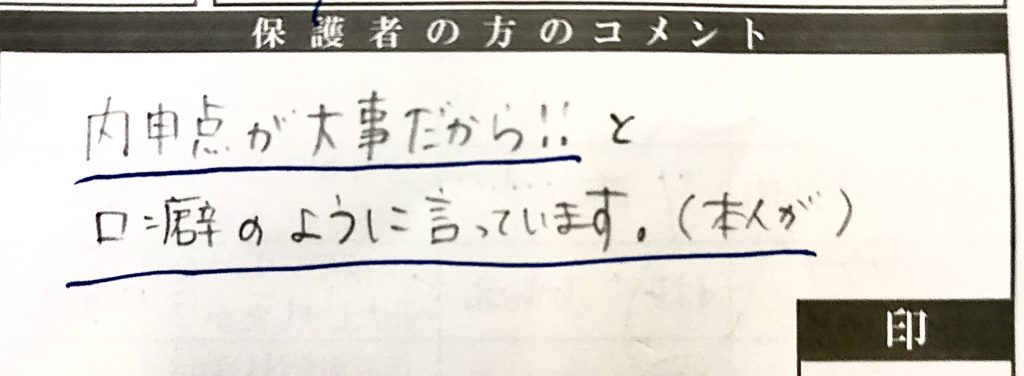 保護者の方のコメント
内申点が大事だから!! と
口癖のように言っています。(本人が)
印